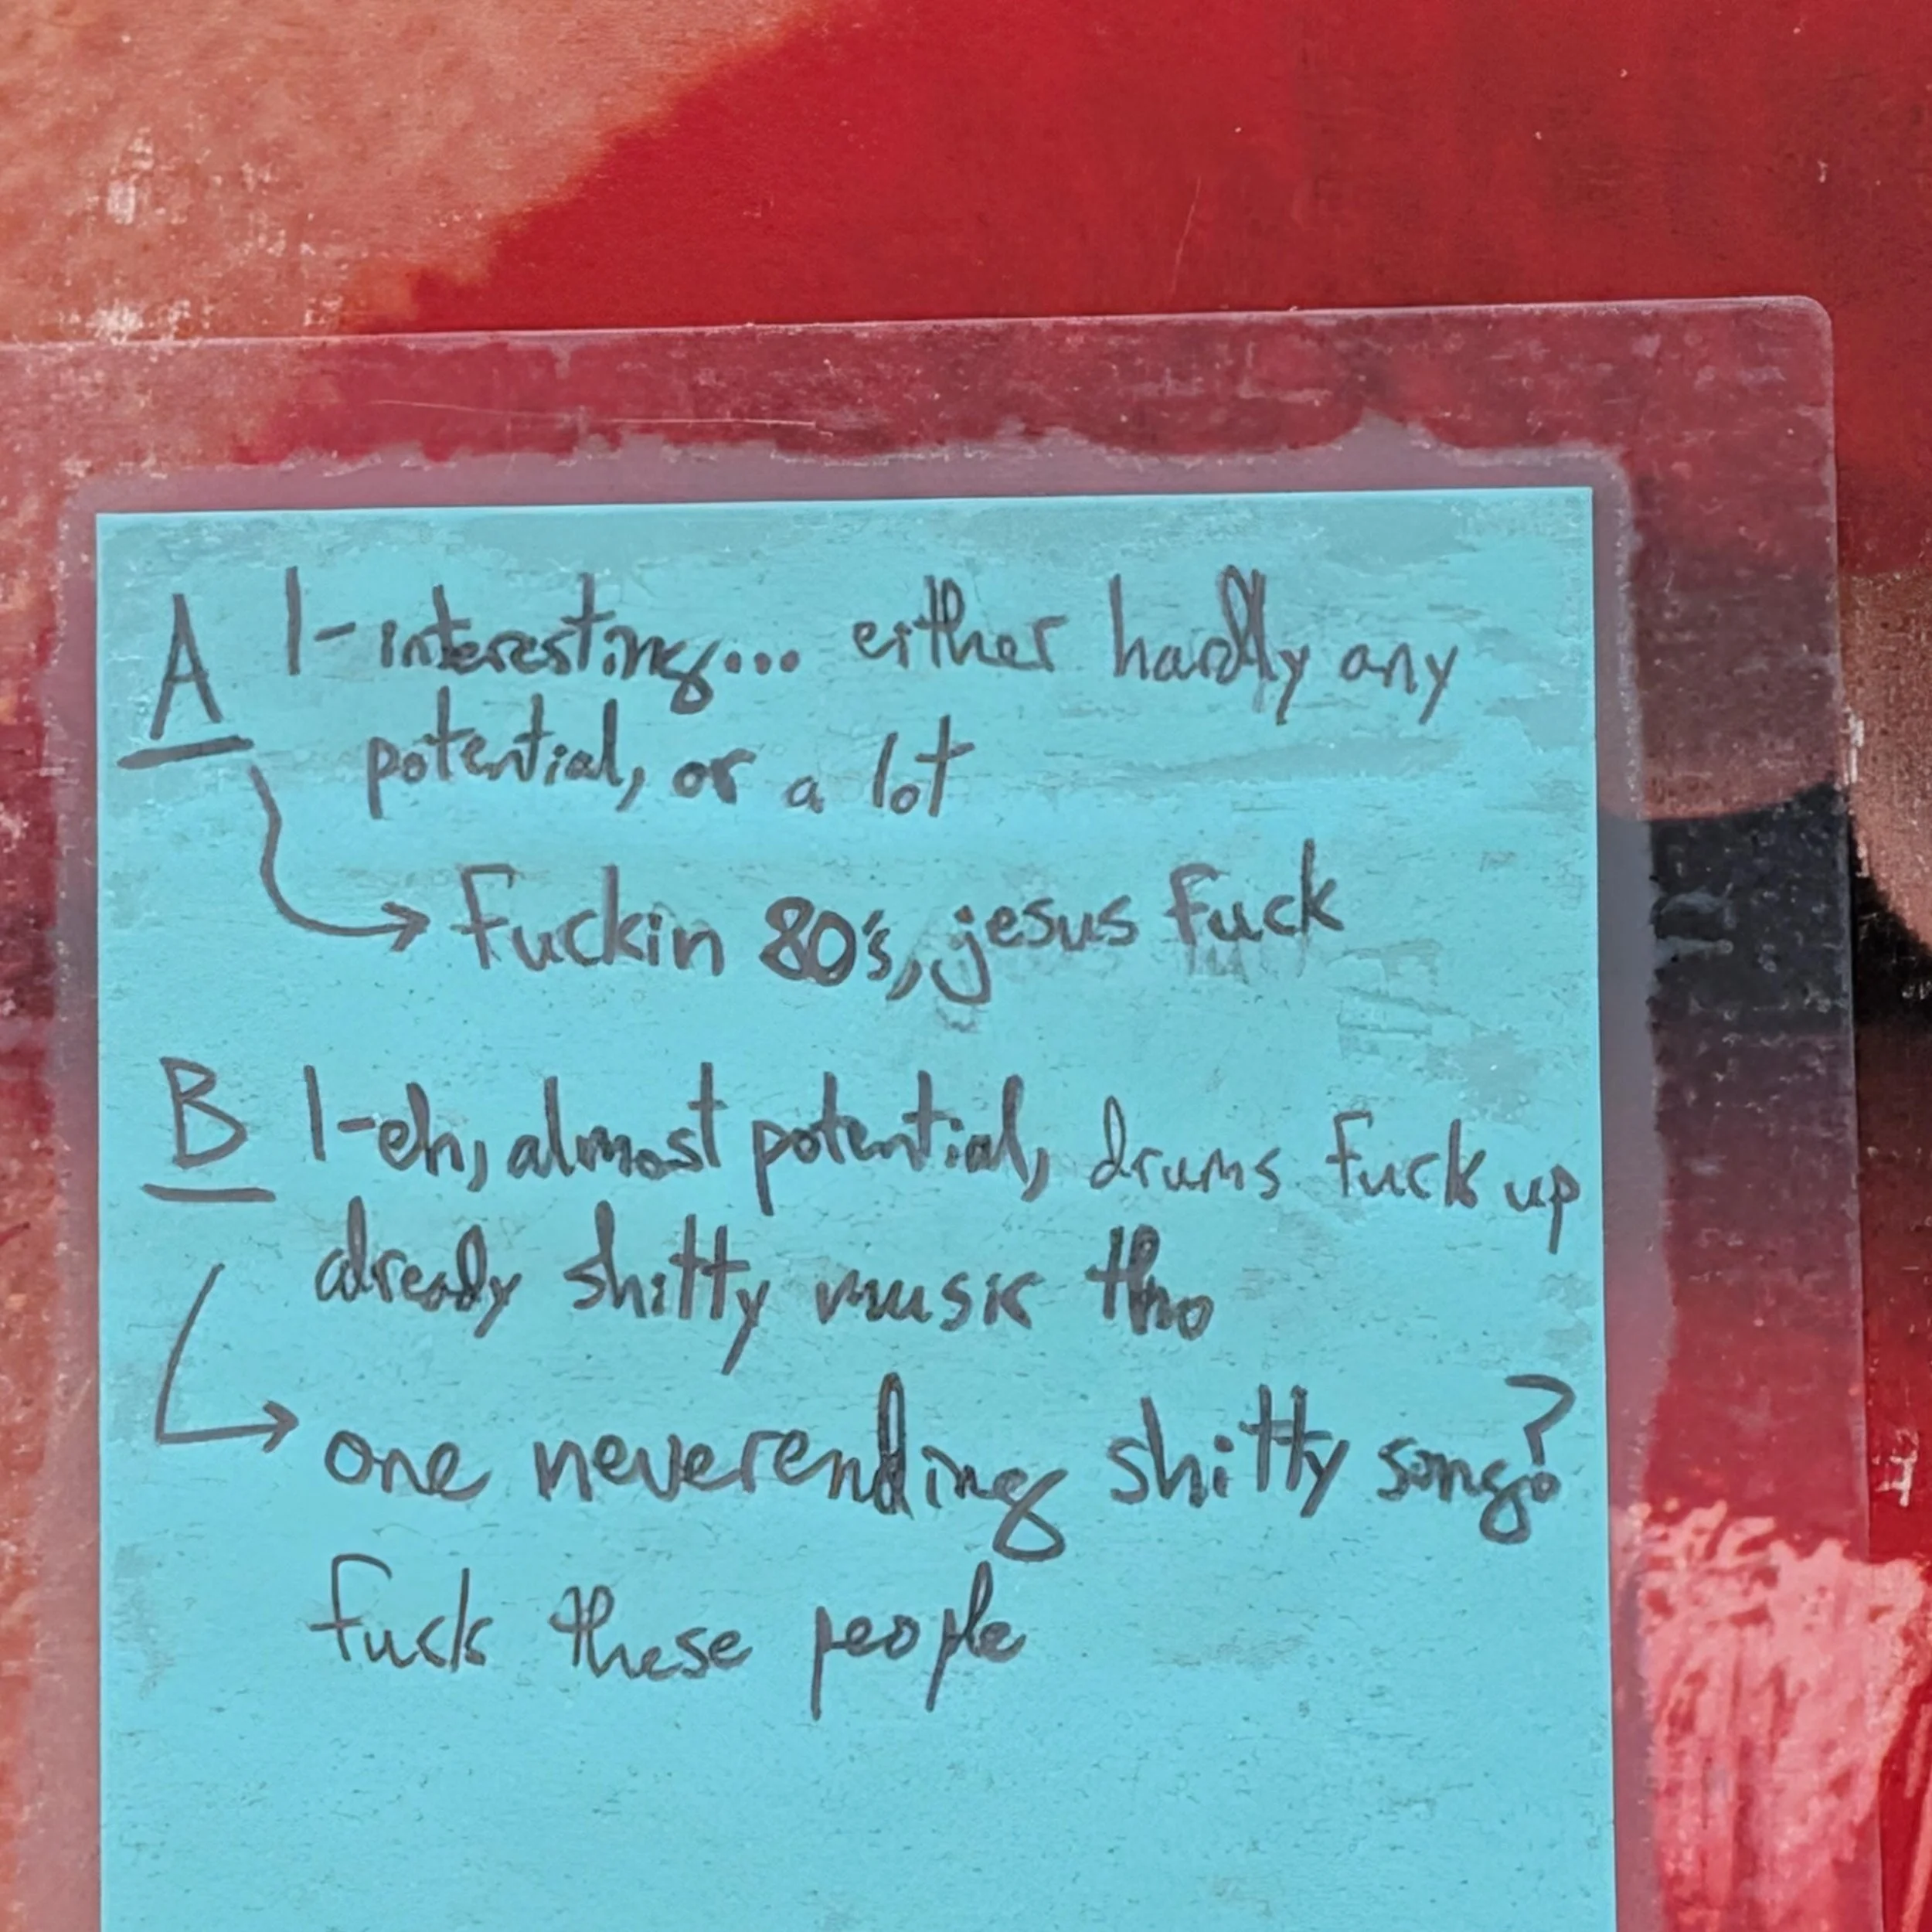 A 1-interesting... either hardly any
potential, or a lot
→ Fuckin 80's, jesus fuck
B 1-eh, almost potential, drums fuck up
already shitty music tho
→ one neverending shitty song?
fuck these people